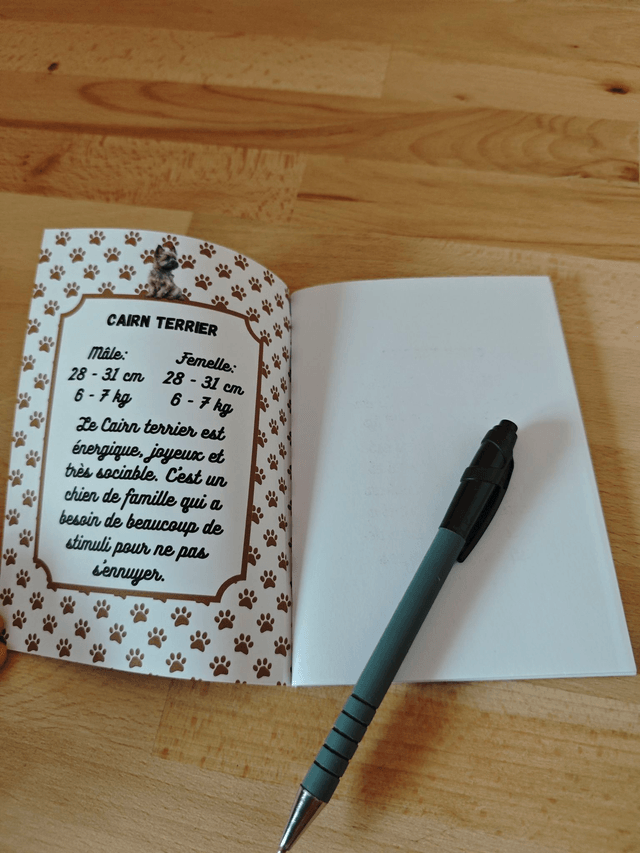 CAIRN TERRIER
Mâle: Femelle:
28 - 31 cm 28 - 31 cm
6 - 7 kg 6 - 7 kg
Le Cairn terrier est
énergique, joyeux et
très sociable. C'est un
chien de famille qui a
besoin de beaucoup de
stimuli pour ne pas
s'ennuyer.